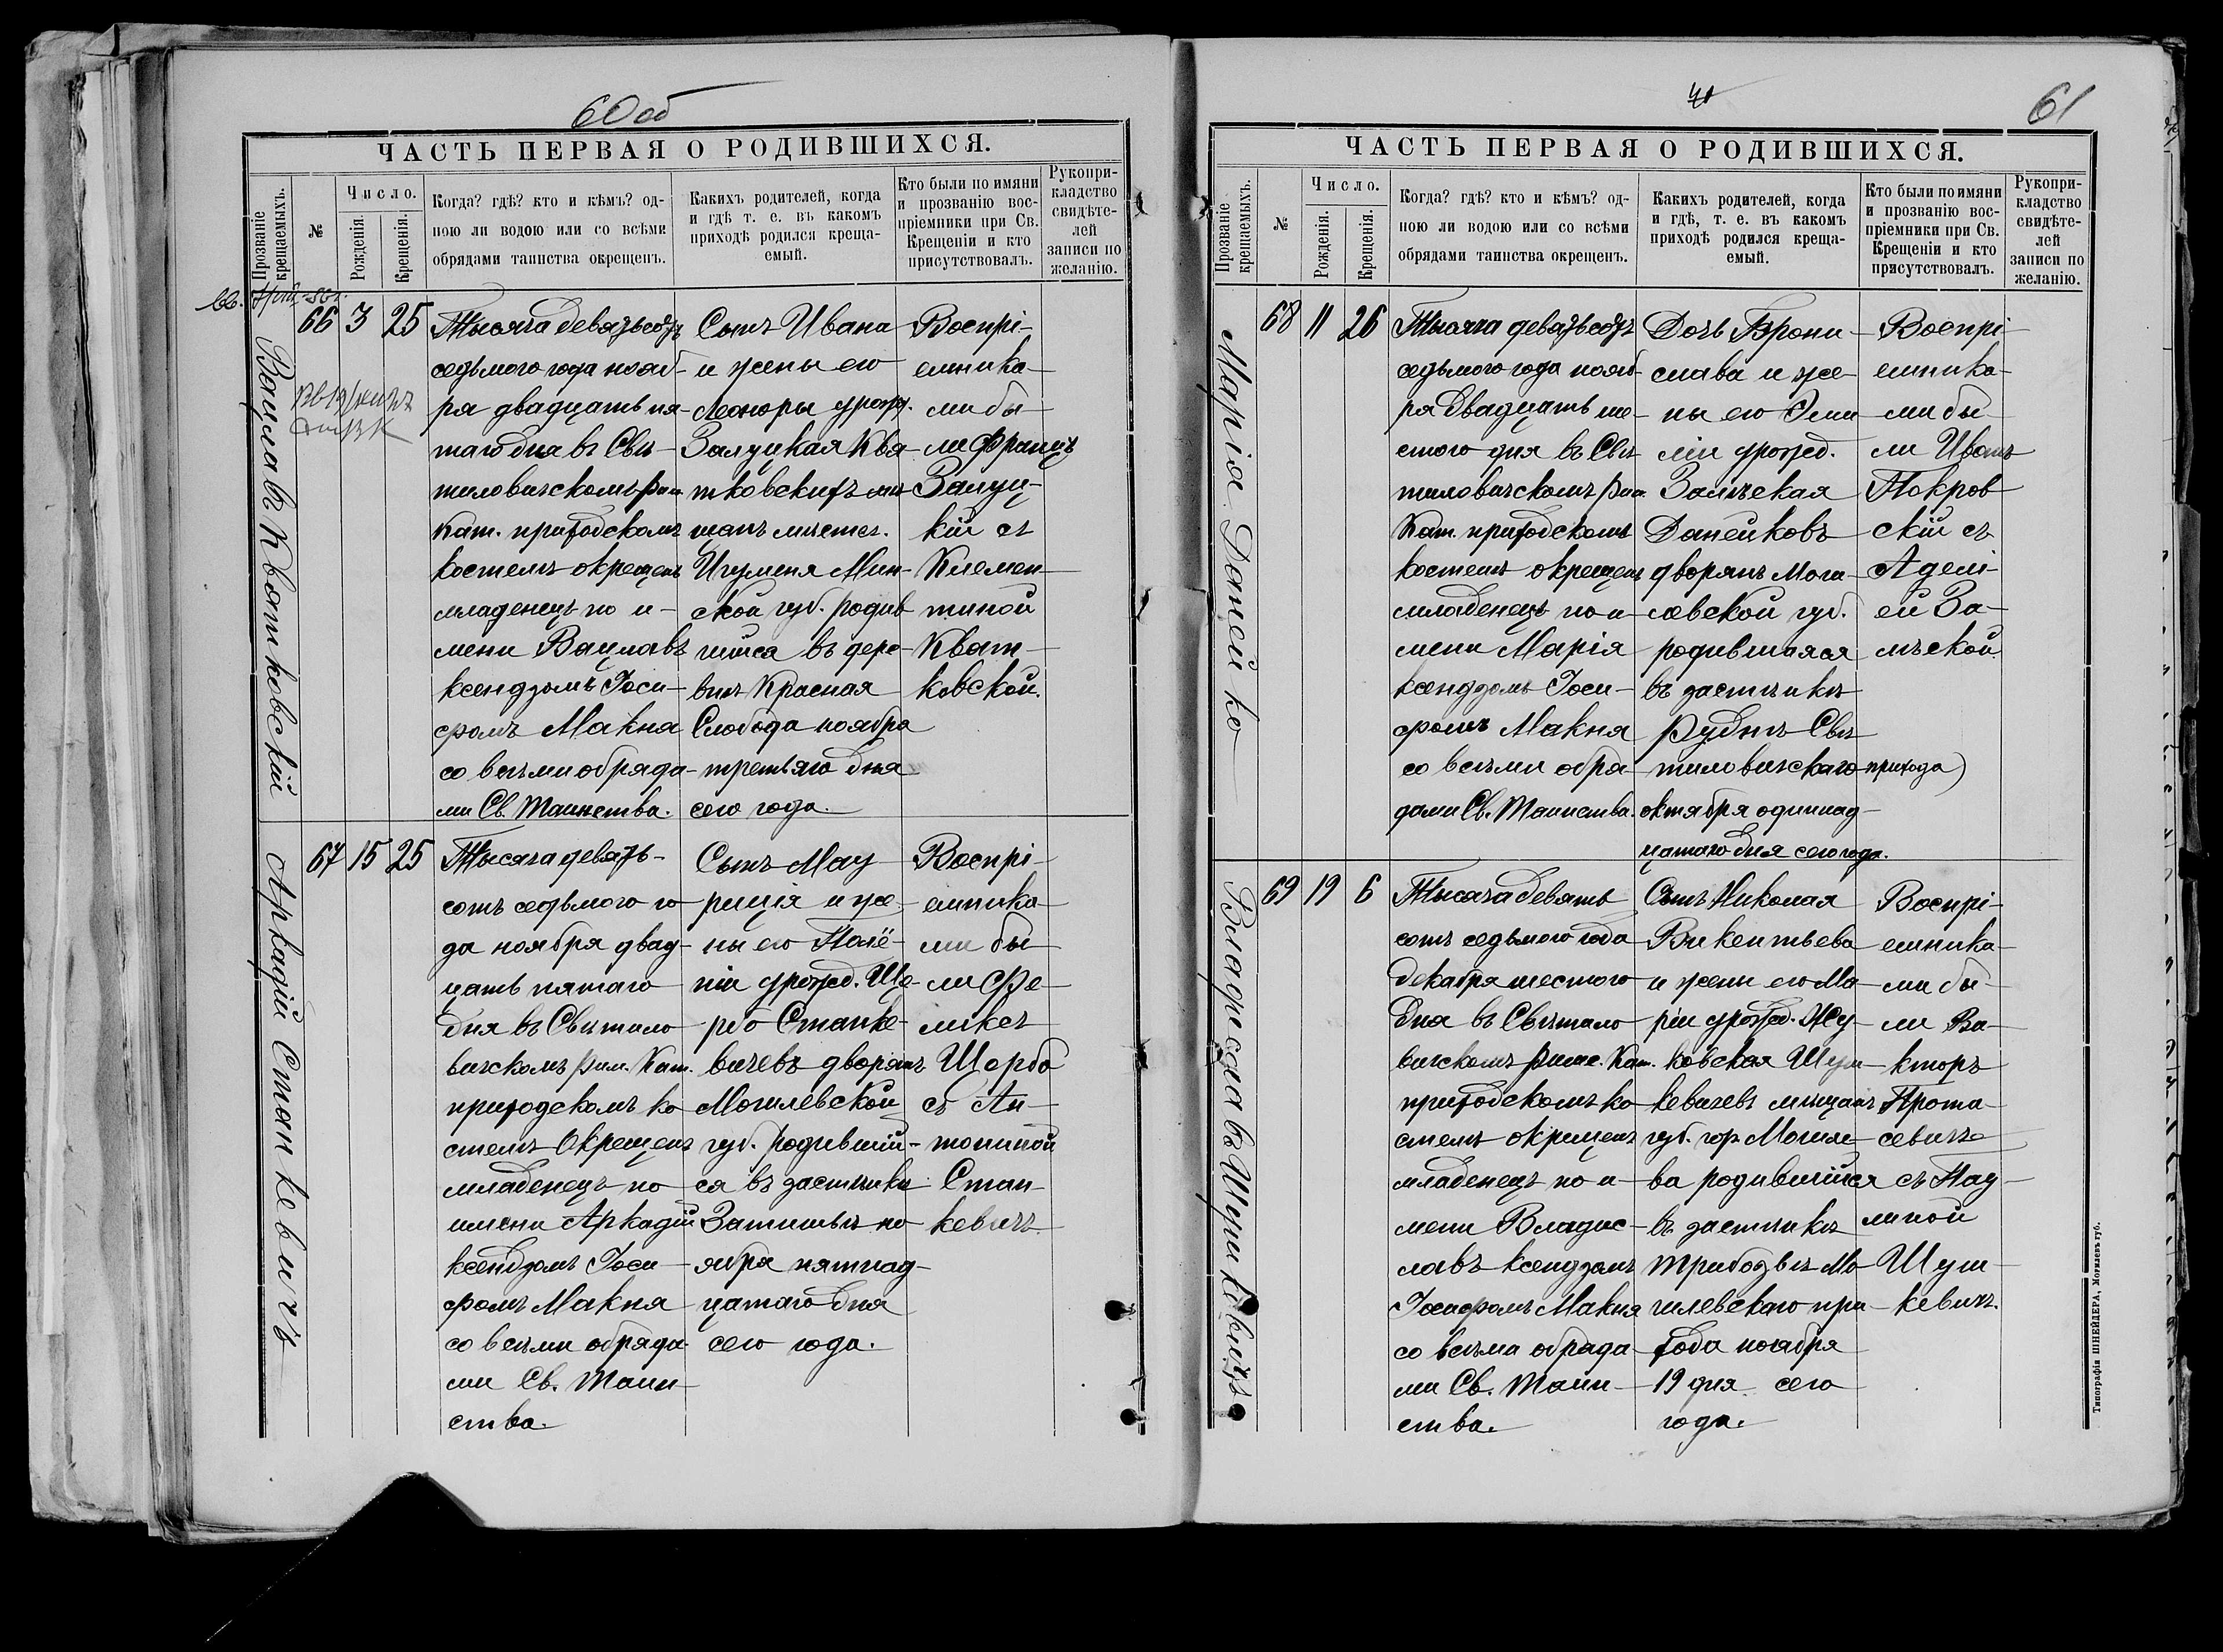 60 об
ЧАСТЬ ПЕРВАЯ О РОДИВШИХСЯ.
Прозваніе крещаемыхъ.
№
Число.
Рожденія.
Крещенія.
Когда? гдѣ? кто и кѣмъ? од-
ною ли водою или со всѣми
обрядами таинства окрещенъ.
Какихъ родителей, когда
и гдѣ т. е. въ какомъ
приходѣ родился креща-
емый.
Кто были по имяни
и прозванію вос-
пріемники при Св.
Крещеніи и кто
присутствовалъ.
Рукопри-
кладство
свидѣте-
лей
записи по
желанію.
Вацлавъ Квятковскій
66 3 25
Тысяча девятьсотъ
седьмого года нояб-
ря двадцать пя-
таго дня въ Свѣ-
тиловическомъ Рим.
Кат. приходскомъ
костелѣ окрещенъ
младенецъ по и-
мени Вацлавъ
ксендзомъ Іоси-
фомъ Макня
со всѣми обряда-
ми Св. Таинства.
Сынъ Ивана
и жены его
Леоноры урожд.
Залуцкая Квя-
тковскихъ мѣ-
щанъ мѣстеч.
Игуменя Мин-
ской губ. родив
шійся въ дере-
внѣ Красная
Слобода ноября
третьяго дня
сего года.
Воспрі-
емника-
ми бы-
ли Францъ
Залуц-
кій съ
Клемен-
тиной
Кват-
ковской.
Аркадій Станкевичъ
67 15 25
Тысяча девять-
сотъ седьмого го
да ноября двад-
цать пятаго
дня въ Свѣтило
вичскомъ Рим. Кат.
приходскомъ ко
стелѣ окрещенъ
младенецъ по
имени Аркадій
ксендзомъ Іоси-
фомъ Макня
со всѣми обряда-
ми Св. Таин-
ства.
Сынъ Мау
риція и же-
ны его Полё-
ніи урожд. Ще-
рбо Станке-
вичевъ дворянъ
Могилевской
губ. родившій-
ся въ застѣнки
Затишьѣ но-
ября пятнад-
цатаго дня
сего года.
Воспрі-
емника-
ми бы-
ли Фе-
ликсъ
Щорбо
съ Ан-
тониной
Стан-
кевичъ.
61
ЧАСТЬ ПЕРВАЯ О РОДИВШИХСЯ.
Прозваніе крещаемыхъ.
№
Число.
Рожденія.
Крещенія.
Когда? гдѣ? кто и кѣмъ? од-
ною ли водою или со всѣми
обрядами таинства окрещенъ.
Какихъ родителей, когда
и гдѣ, т. е. въ какомъ
приходѣ родился креща-
емый.
Кто были по имяни
и прозванію вос-
пріемники при Св.
Крещеніи и кто
присутствовалъ.
Рукопри-
кладство
свидѣте-
лей
записи по
желанію.
Марія Данейко
68 11 26
Тысяча девятьсотъ
седьмого года нояб-
ря двадцать ше-
стого дня въ Свѣ
тиловичскомъ Рим.
Кат. приходскомъ
костелѣ окрещенъ
младенецъ по и-
мени Марія
ксендзомъ Іоси-
фомъ Макня
со всѣми обря-
дами Св. Таинства.
Дочь Брони-
слава и же-
ны его Эми
ліи урожд.
Замъская
Данейковъ
дворянъ Моги-
левской губ.
родившаяся
въ застѣнкѣ
Руднѣ Свѣ
тиловичскаго прихода)
октября одиннад-
цатаго дня сего года.
Воспрі-
емника-
ми бы-
ли Иванъ
Покров
скій съ
Аделі-
ей За-
мъской.
Владиславъ Шушкевичъ
69 19 6
Тысяча девять
сотъ седьмого года
декабря шестого
дня въ Свѣтило
вичскомъ Римс. Кат.
приходскомъ ко
стелѣ окрещенъ
младенецъ по и-
мени Владис-
лавъ ксендзомъ
Іосифомъ Макня
со всѣми обряда-
ми Св. Таин-
ства.
Сынъ Николая
Викентьева
и жены его Ма-
ріи урожд. Жу-
ковская Шуш-
кевичевъ мѣщанъ
губ. гор. Могиле
ва родившійся
въ застѣнкѣ
Трибодзвѣ Мо
гилевскаго при-
хода ноября
19 дня сего
года.
Воспрі-
емника-
ми бы-
ли Ви-
кторъ
Прота-
севичъ
съ Пау-
линой
Шуш-
кевичъ.
Типографія ШНЕЙДЕРА, Могилевъ губ.